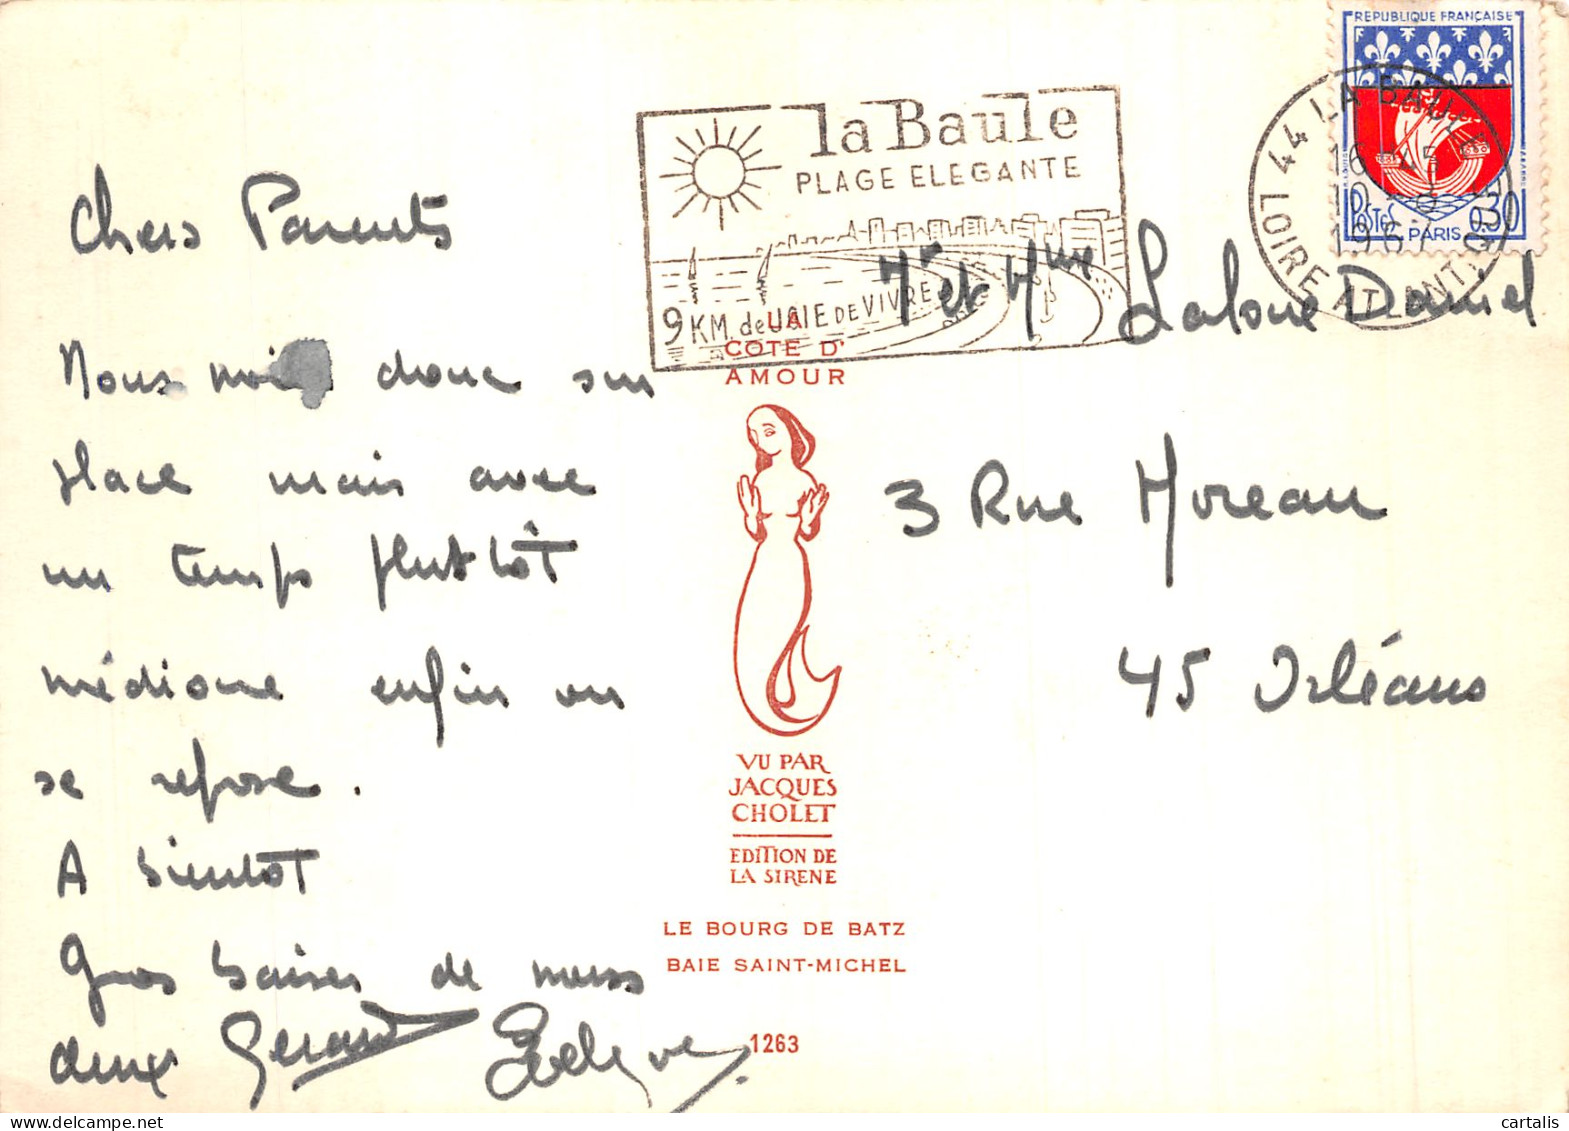 Chers Parents
Nous voici donc sur
place mais avec
un temps plutôt
médiocre enfin on
se repose.
A bientôt
Gros baisers de nous
deux Gérard
la Baule
PLAGE ELEGANTE
9 KM. de JOIE DE VIVRE
REPUBLIQUE FRANÇAISE
POSTES
0.30
PARIS
44 LA BAULE
LOIRE ATLANT.
LA
COTE D'
AMOUR
VU PAR
JACQUES
CHOLET
EDITION DE
LA SIRENE
LE BOURG DE BATZ
BAIE SAINT-MICHEL
1263
Mr et Mme Laloue Daniel
3 Rue Moreau
45 Orléans
cartalis